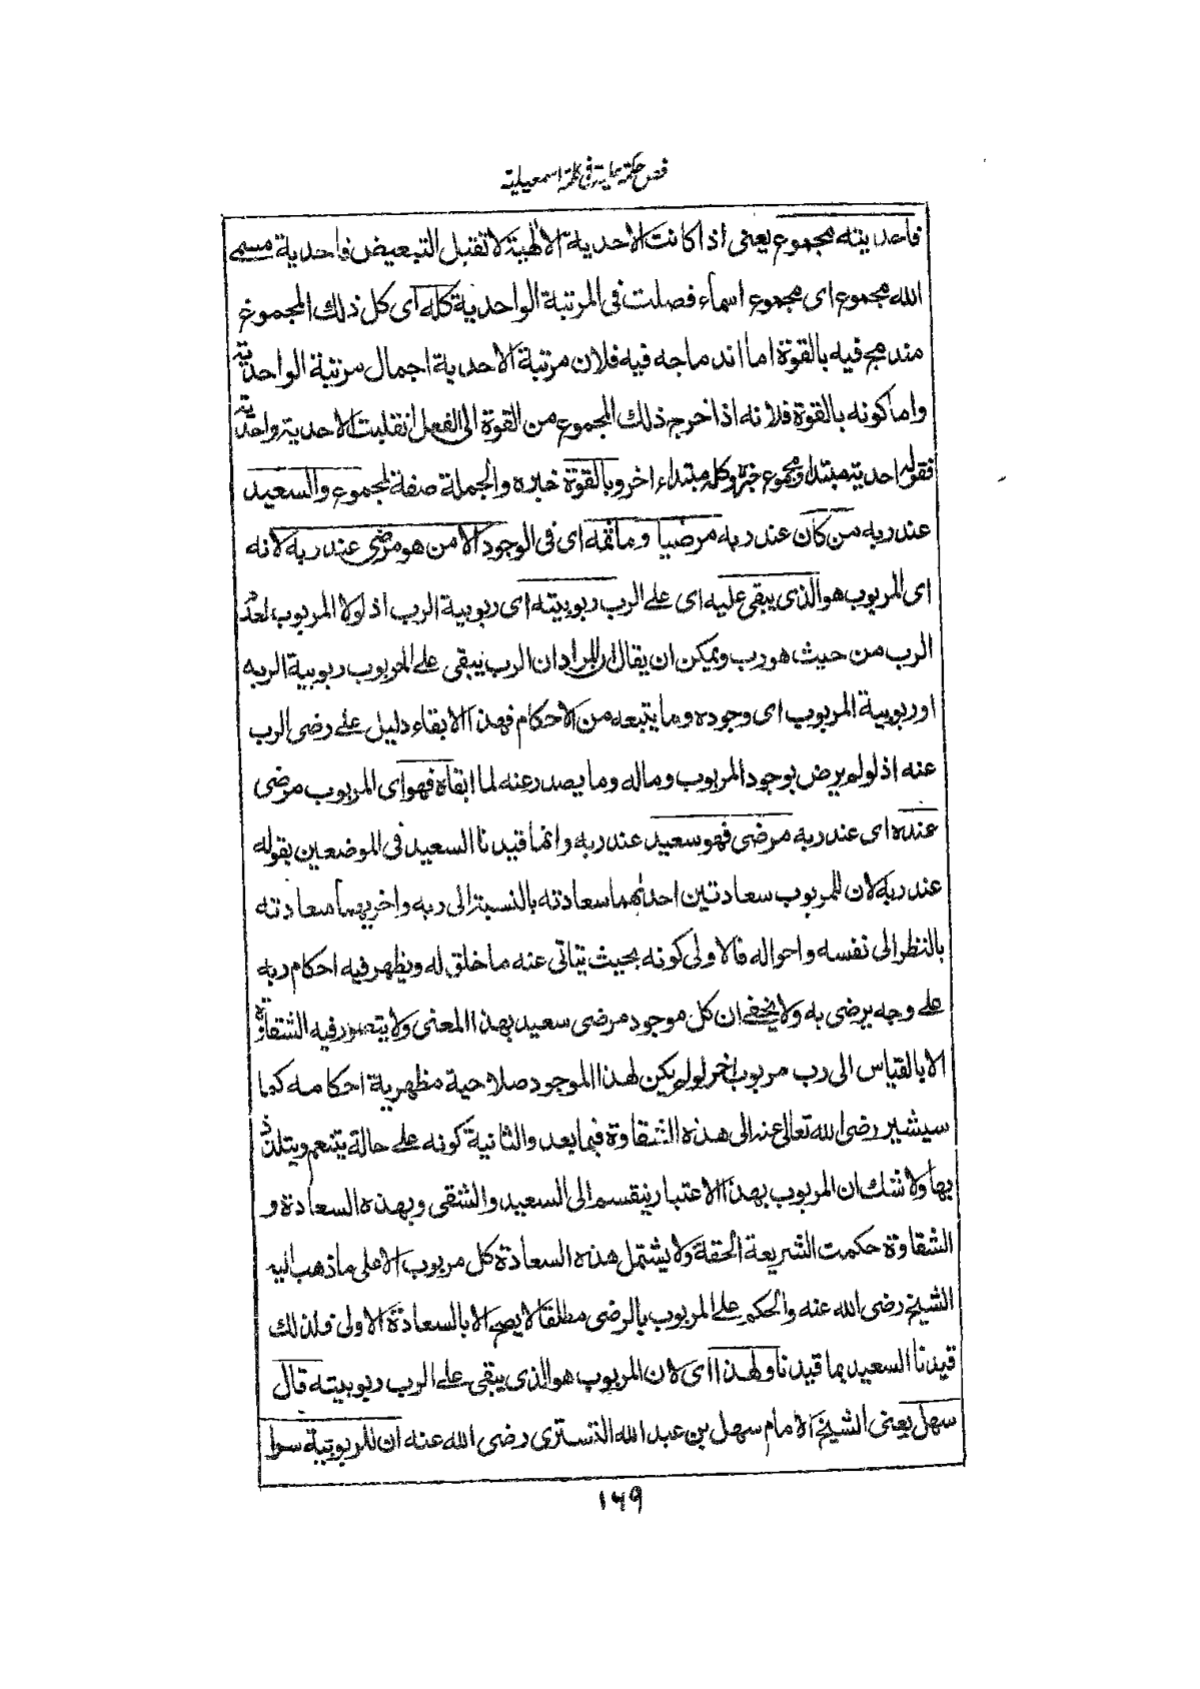 فص حكمة علية في كلمة اسمعيلية
فاحديته مجموع يعنى اذا كانت الاحدية الالهية لا تقبل التبعيض فاحدية مسمى
الله مجموع اى مجموع اسماء فصلت فى المرتبة الواحدية كله اى كل ذلك المجموع
مندمج فيه بالقوة اما اندماجه فيه فلان مرتبة الاحدية اجمال مرتبة الواحدية
واما كونه بالقوة فلانه اذا خرج ذلك المجموع من القوة الى الفعل انقلبت الاحدية واحدية
فقوله احديته مبتداء ومجموع خبره وكله مبتداء اخر وبالقوة خبره والجملة صفة لمجموع والسعيد
عند ربه من كان عند ربه مرضيا وما ثمه اى فى الوجود الا من هو مرضى عند ربه لانه
اى المربوب هو الذى يبقى عليه اى على الرب ربوبيته اى ربوبية الرب اذ لولا المربوب لعدم
الرب من حيث هو رب ويمكن ان يقال ان المراد ان الرب يبقى على المربوب ربوبية الربه
او ربوبية المربوب اى وجوده وما يتبعه من الاحكام فهذا الابقاء دليل على رضى الرب
عنه اذ لو لم يرض بوجود المربوب وماله وما يصدر عنه لما ابقاه فهو اى المربوب مرضى
عنده اى عند ربه مرضى فهو سعيد عند ربه وانما قيدنا السعيد فى الموضعين بقوله
عند ربه لان للمربوب سعادتين احدٰهما سعادته بالنسبة الى ربه واخريهما سعادته
بالنظر الى نفسه واحواله فالاولى كونه بحيث يتاتى عنه ما خلق له ويظهر فيه احكام ربه
على وجه يرضى به ولا يخفى ان كل موجود مرضى سعيد بهذا المعنى ولا يتصور فيه الشقاوة
الا بالقياس الى رب مربوب اخر لو لم يكن لهذا الموجود صلاحية مظهرية احكامه كما
سيشير رضى الله تعالى عنه الى هذه الشقاوة فيما بعد والثانية كونه على حالة يتنعم ويتلذذ
بها ولا شك ان المربوب بهذا الاعتبار ينقسم الى السعيد والشقى وبهذه السعادة و
الشقاوة حكمت الشريعة الحقة ولا يشتمل هذه السعادة كل مربوب الا على ما ذهب اليه
الشيخ رضى الله عنه والحكم على المربوب بالرضى مطلقا لا يصح الا بالسعادة الاولى فلذلك
قيدنا السعيد بما قيدنا ولهذا اى لان المربوب هو الذى يبقى على الرب ربوبيته قال
سهل يعنى الشيخ الامام سهل بن عبد الله التسترى رضى الله عنه ان للربوبية سرا
١٦٩